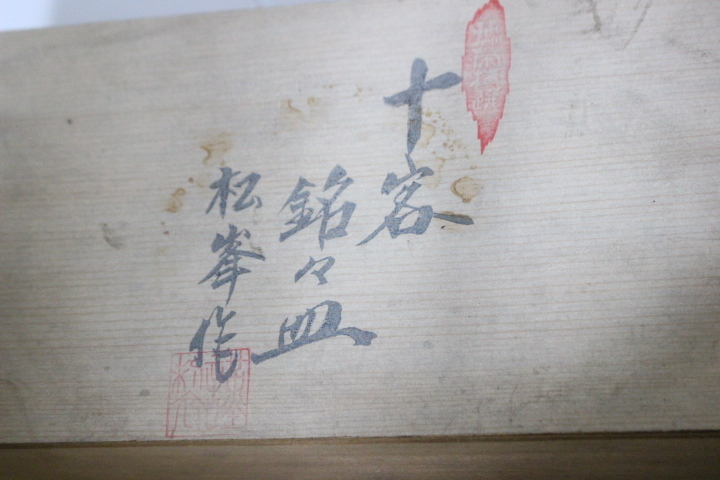 十客
銘々皿
松峯作